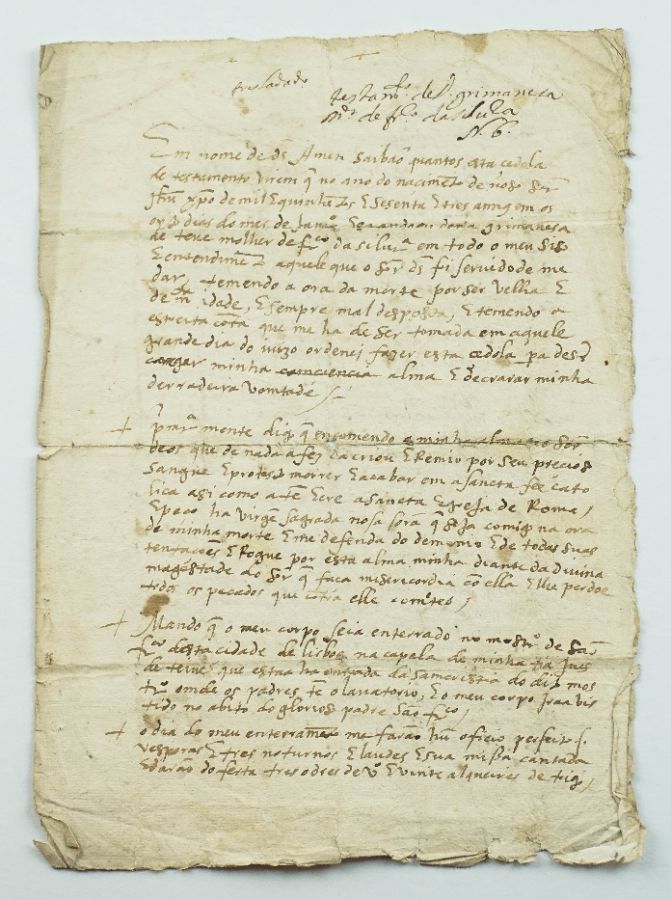 tresladado
testamto de Dª grimanesa
m.er de frco da silvra
N. 6.
Em nome de ds Amen saibaõ quantos esta cedola
de testamento virem q̃ no ano do nacimẽto de noso Sõr
Jhũ xpo de mil E quinhẽtos E sesenta E tres annos em os
dias do mes de Janro Eu dona grimanesa
de teive molher de frco da silvra em todo o meu siso
E entendimẽto aquele que o sõr ds foi servido de me
dar, temendo a ora da morte por ser velha E
de idade, E sempre mal desposta, E temendo a
estreita cõta que me ha de ser tomada em aquele
grande dia do juizo ordenei fazer esta cedola pa des
cargar minha conciencia alma E decrarar minha
derradeira vomtade
primramente digo q̃ encomendo a minha alma a nosso sõr
deos que de nada a fez E a criou E Remio por seu precioso
sangue E protesto morrer E acabar em a sancta fee cato
lica asi como a tẽ E cre a sancta Egreja de Roma /
E peço ha virgẽ sagrada nosa sõra q̃ seja comigo na ora
de minha morte E me defenda do demonio E de todas suas
tentacoẽs E Rogue por esta alma minha diante da divina
magestade do Sõr q̃ faca misericordia cõ ella E lhe perdoe
todos os pecados que cõtra elle cometeo /
Mando q̃ o meu corpo seia enterrado no mostro de saõ
frco desta cidade de lisboa na capela de minha tia ines
de teive que estaa ha entrada da samcrestia do dito mos
tro onde os padres tẽ o lavatorio, E o meu corpo iraa vis
tido no abito do glorioso padre saõ frco /
o dia do meu enterramento me faraõ hũ oficio perfeito s.
vesporas E tres noturnos E laudes E sua missa cantada
E daraõ do ferta tres odres de vo E vinte alqueires de trigo /